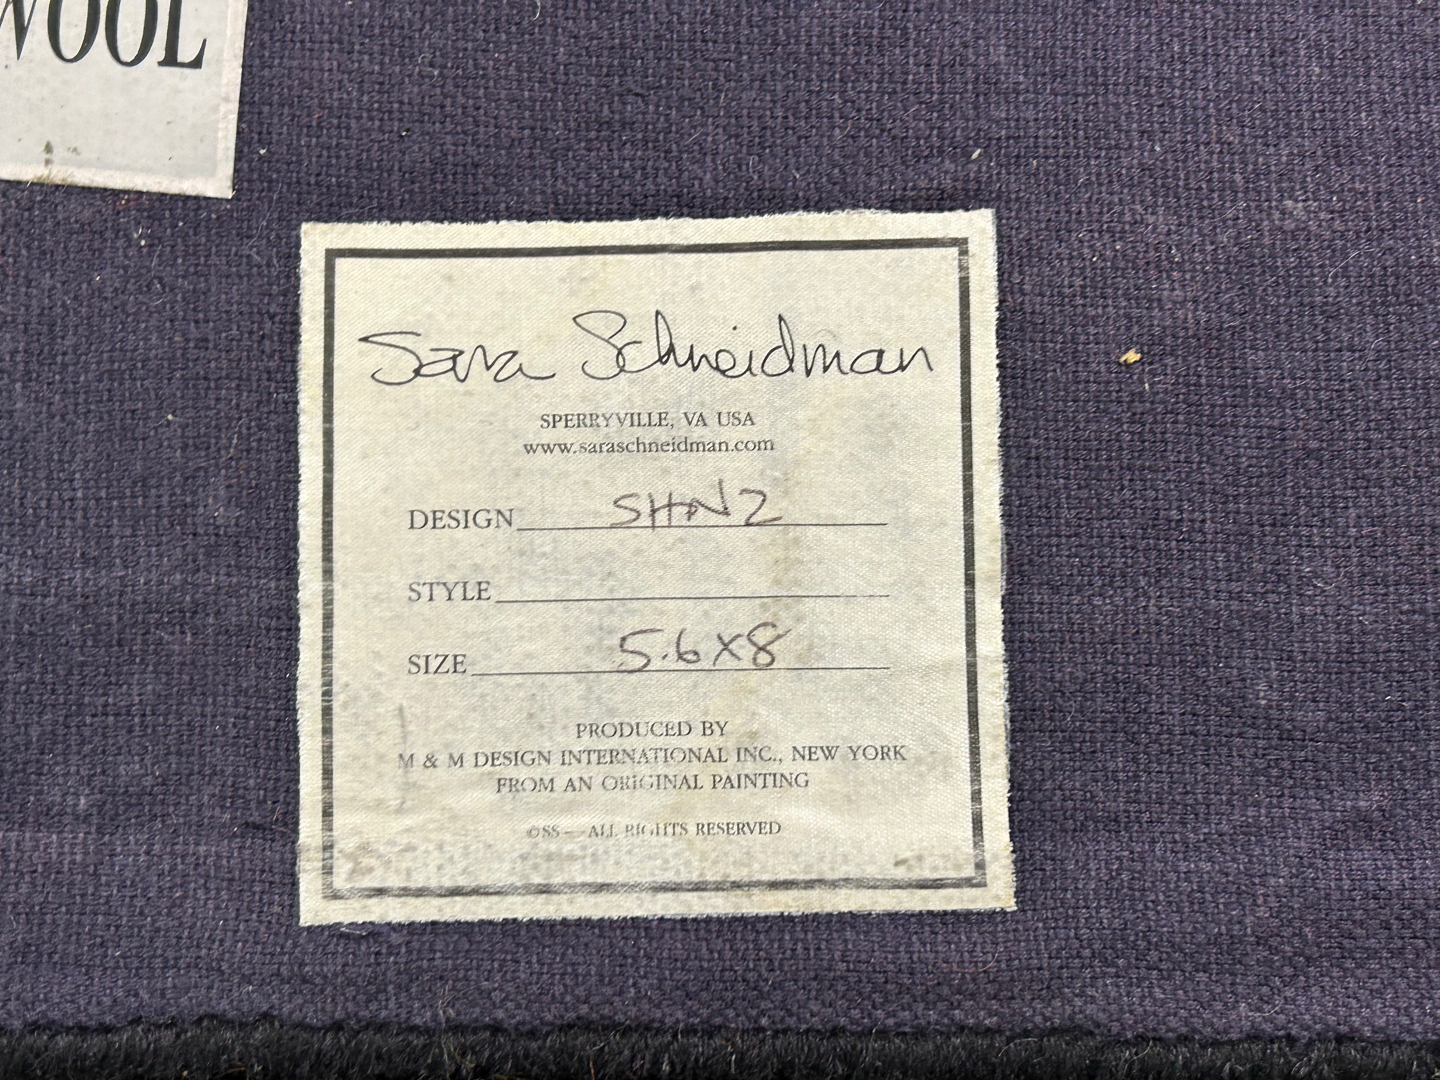 WOOL
Sara Schneidman
SPERRYVILLE, VA USA
www.saraschneidman.com
DESIGN SHN2
STYLE
SIZE 5.6X8
PRODUCED BY
M & M DESIGN INTERNATIONAL INC., NEW YORK
FROM AN ORIGINAL PAINTING
©SS — ALL RIGHTS RESERVED